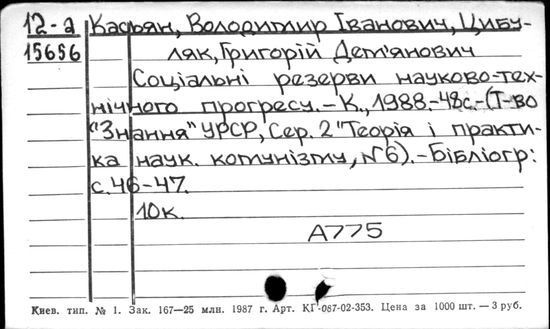 12-а Касьян, Володимир Іванович, Цибу-
15656 ляк, Григорій Дем'янович
Соціальні резерви науково-тех-
нічного прогресу. – К., 1988.-48с.-(Т-во
"Знання" УРСР, Сер. 2 "Теорія і практи-
ка наук. комунізму, №6).-Бібліогр:
с.46-47.
10к.
А775
Киев. тип. № 1. Зак. 167—25 млн. 1987 г. Арт. КГ-087-02-353. Цена за 1000 шт. — 3 руб.